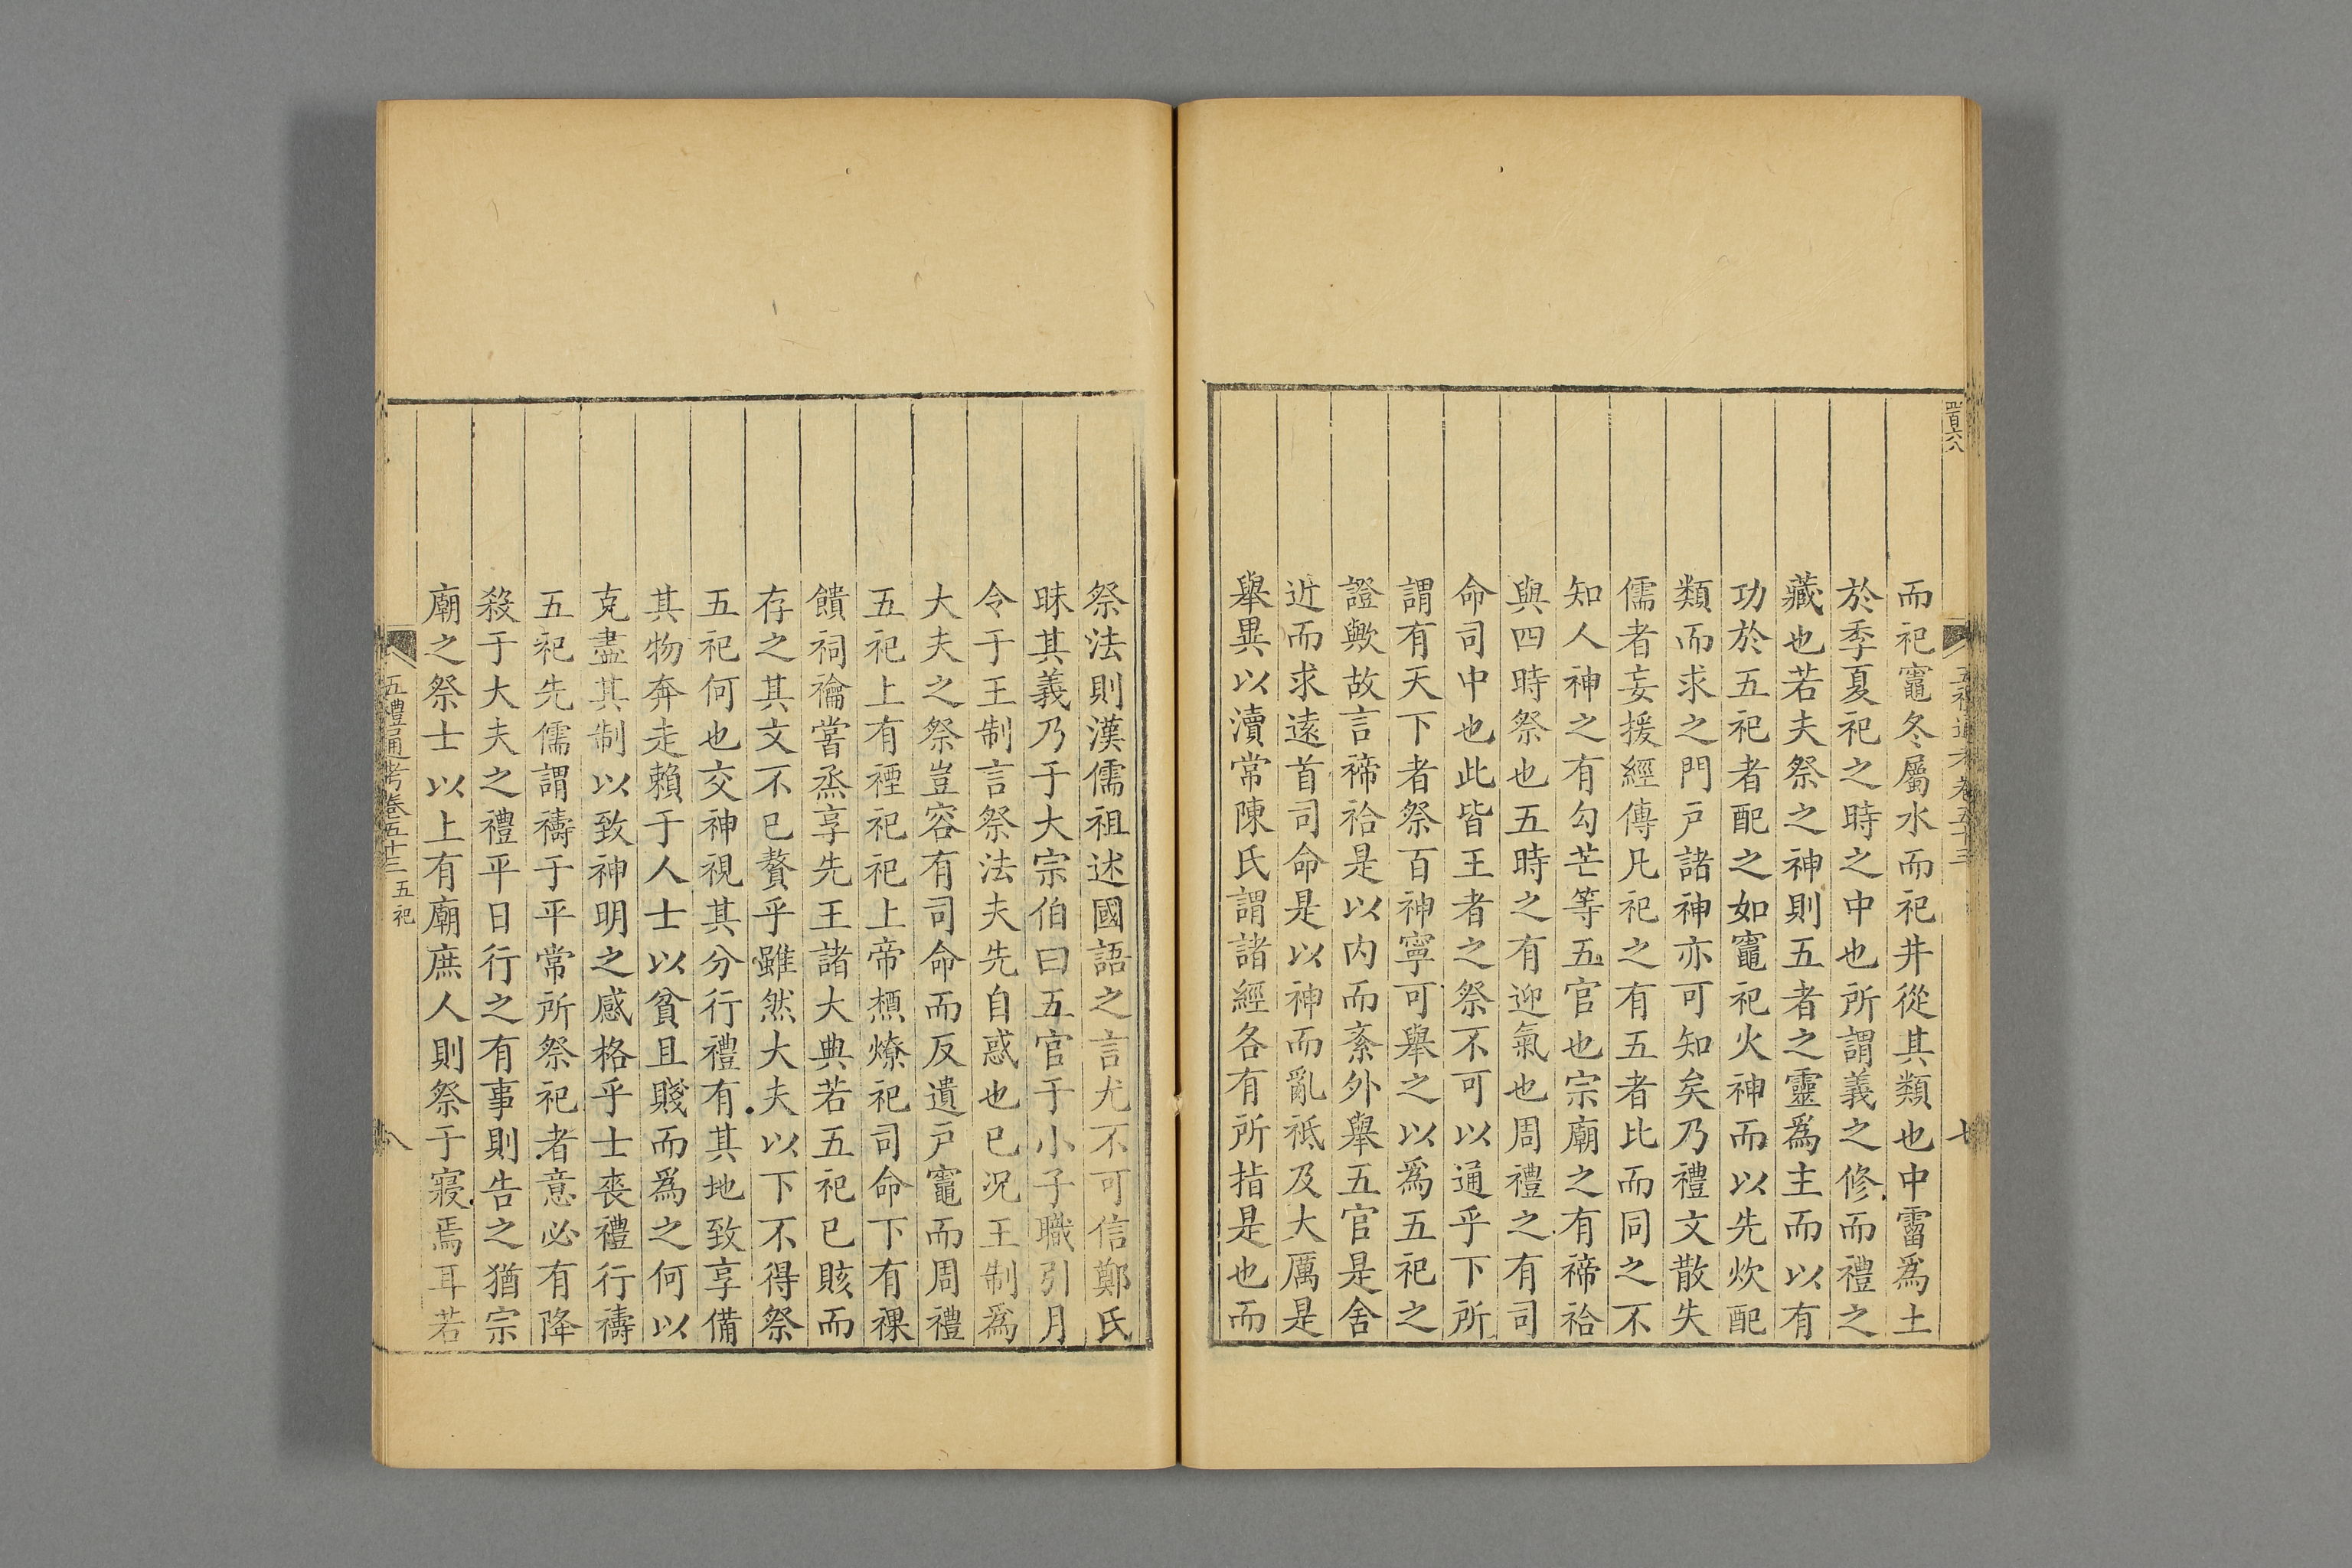 四百六八
五禮通考卷五十三
七
而祀竈冬屬水而祀井從其類也中霤爲土
於季夏祀之時之中也所謂義之修而禮之
藏也若夫祭之神則五者之靈爲主而以有
功於五祀者配之如竈祀火神而以先炊配
類而求之門戸諸神亦可知矣乃禮文散失
儒者妄援經傳凡祀之有五者比而同之不
知人神之有勾芒等五官也宗廟之有禘祫
與四時祭也五時之有迎氣也周禮之有司
命司中也此皆王者之祭不可以通乎下所
謂有天下者祭百神寧可舉之以爲五祀之
證歟故言禘祫是以内而紊外舉五官是舍
近而求遠首司命是以神而亂祗及大厲是
舉異以瀆常陳氏謂諸經各有所指是也而
祭法則漢儒祖述國語之言尤不可信鄭氏
昧其義乃于大宗伯曰五官于小子職引月
令于王制言祭法夫先自惑也已况王制爲
大夫之祭豈容有司命而反遺戸竈而周禮
五祀上有禋祀祀上帝槱燎祀司命下有祼
饋祠禴嘗烝享先王諸大典若五祀已賅而
存之其文不已贅乎雖然大夫以下不得祭
五祀何也交神視其分行禮有其地致享備
其物奔走賴于人士以貧且賤而爲之何以
克盡其制以致神明之感格乎士喪禮行禱
五祀先儒謂禱于平常所祭祀者意必有降
殺于大夫之禮平日行之有事則告之猶宗
廟之祭士以上有廟庶人則祭于寢焉耳若
五禮通考卷五十三 五祀
八